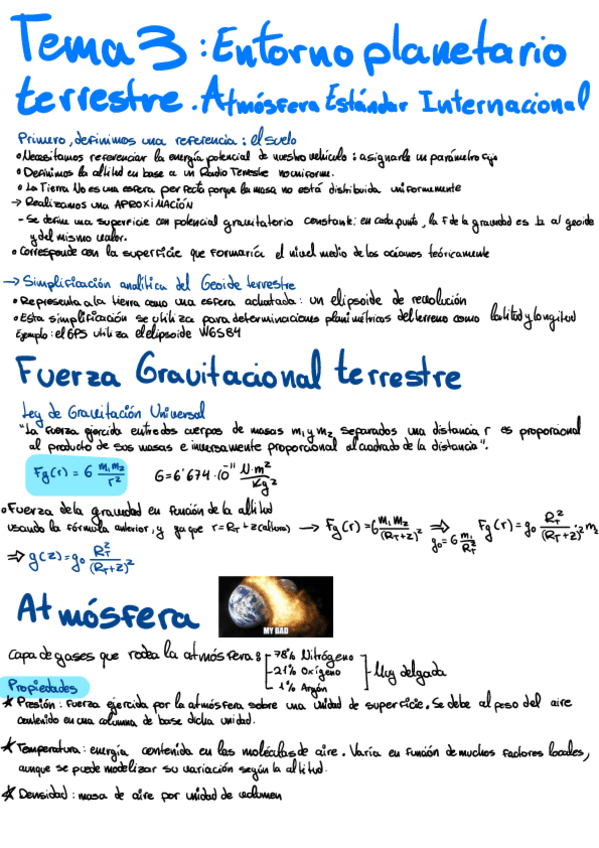 Tema 3: Entorno planetario
terrestre. Atmósfera Estándar Internacional
Primero, definimos una referencia: el suelo
• Necesitamos referenciar la energía potencial de nuestro vehículo: asignarle un parámetro fijo
• Definimos la altitud en base a un Radio Terrestre no uniforme.
• La Tierra No es una esfera perfecta porque la masa no está distribuida uniformemente
→ Realizamos una APROXIMACIÓN
- Se define una superficie con potencial gravitatorio constante: en cada punto, la F de la gravedad es ⊥ al geoide
y del mismo valor.
• Corresponde con la superficie que formaría el nivel medio de los océanos teóricamente
→ Simplificación analítica del Geoide terrestre
• Representa a la tierra como una esfera achatada: un elipsoide de revolución
• Esta simplificación se utiliza para determinaciones planimétricas del terreno como latitud y longitud
Ejemplo: el GPS utiliza el elipsoide WGS84
Fuerza Gravitacional terrestre
Ley de Gravitación Universal
"La fuerza ejercida entre dos cuerpos de masas m₁ y m₂ separados una distancia r es proporcional
al producto de sus masas e inversamente proporcional al cuadrado de la distancia".
Fg(r) = G m₁m₂/r² G=6'674·10⁻¹¹ N·m²/Kg²
• Fuerza de la gravedad en función de la altitud
usando la fórmula anterior, y ya que r=R_T+z(altura) → Fg(r)=G m₁m₂/(R_T+z)² ⇒ g₀=G m₁/R_T² Fg(r)=g₀ R_T²/(R_T+z)²·m₂
⇒ g(z)=g₀ R_T²/(R_T+z)²
Atmósfera
MY BAD
Capa de gases que rodea la atmósfera: 78% Nitrógeno
21% Oxígeno
1% Argón
Muy delgada
Propiedades
* Presión: fuerza ejercida por la atmósfera sobre una unidad de superficie. Se debe al peso del aire
contenido en una columna de base dicha unidad.
* Temperatura: energía contenida en las moléculas de aire. Varía en función de muchos factores locales,
aunque se puede modelizar su variación según la altitud.
* Densidad: masa de aire por unidad de volumen